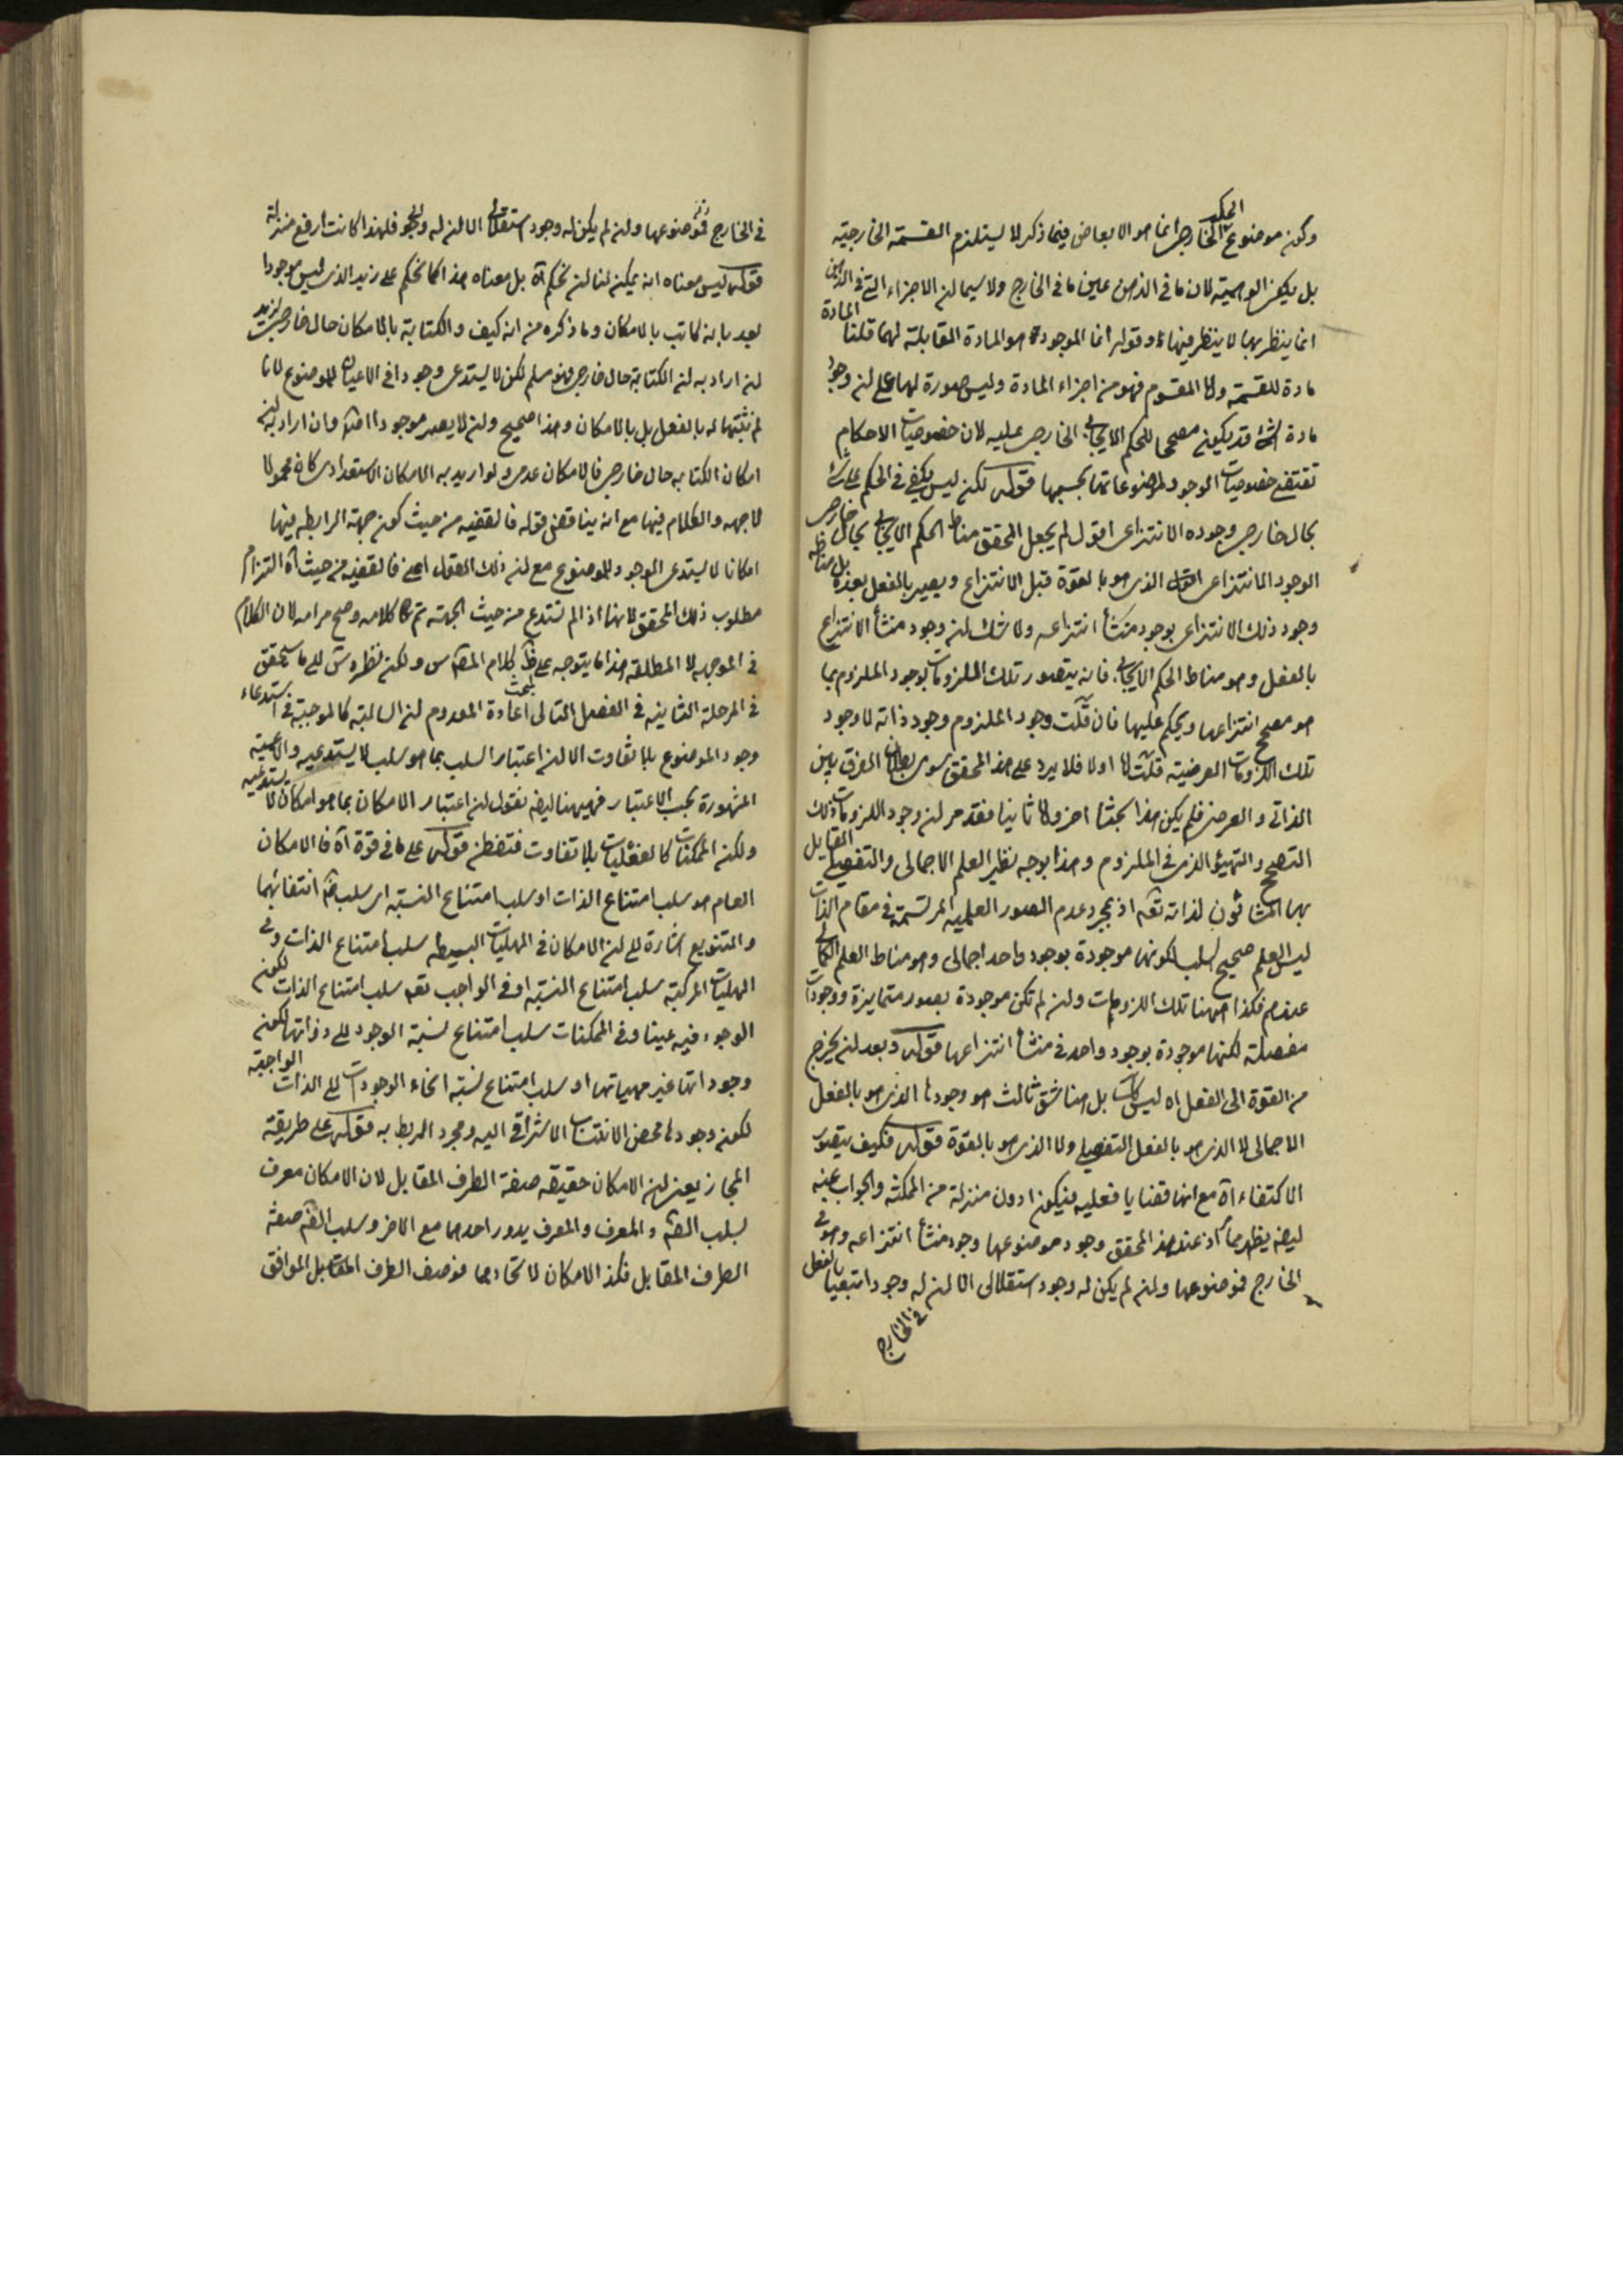 وكون موضوع الحكم الخارجى انما هو الابعاض فيما ذكر لا يستلزم القسمة الخارجية
بل يكفى الوهمية لان ما فى الذهن عين ما فى الخارج ولا سيما ان الاجزاء التى فى الذهن
انما ينظر بها لا ينظر فيها وقوله انما الموجود هو المادة المقابلة لهما قلنا المادة
مادة للقسمة ولا المقسوم فهو من اجزاء المادة وليس صورة لها على ان وجود
مادة الشئ قد يكون مصححا للحكم الايجابى الخارجى عليه لان خصوصيات الاحكام
تقتضى خصوصيات الوجود لموضوعاتها بحسبها قوله لكن ليس يكفى فى الحكم على شئ
بحال خارجى وجوده الانتزاعى اقول لم يجعل المحقق مناط الحكم الايجابى بحال خارجى
الوجود الانتزاعى الذى هو بالقوة قبل الانتزاع ويصير بالفعل بعده بل مناطه
وجود ذلك الانتزاعى بوجود منشأ انتزاعه ولا شك ان وجود منشأ الانتزاع
بالفعل وهو مناط الحكم الايجابى فانه يتصور تلك الملزومات بوجود الملزوم بما
هو مصحح انتزاعها ويحكم عليها فان قلت وجود الملزوم وجود ذاته لا وجود
تلك اللزومات العرضية قلت اولا فلا يرد على هذا المحقق سوى بطلان الفرق بين
الذاتى والعرضى فلم يكن هذا بحثا اخر ولا ثانيا فقد مر ان وجود اللزومات ذلك
التصحيح والتهيؤ الذى فى الملزوم وهذا بوجه نظير العلم الاجمالى والتفصيلى القايل
بهما المشاؤون لذاته تعه اذ بمجرد عدم الصور العلمية المرتسمة فى مقام الذات
ليس العلم صحيح السلب لكونها موجودة بوجود واحد اجمالى وهو مناط العلم الكمالى
عندهم فكذا ههنا تلك اللزومات وان لم تكن موجودة بصور متمايزة ووجودات
مفصلة لكنها موجودة بوجود واحد فى منشأ انتزاعها قوله وبعد ان يخرج
من القوة الى الفعل اه ليس كك بل هنا شق ثالث هو وجودها الذى هو بالفعل
الاجمالى لا الذى هو بالفعل التفصيلى ولا الذى هو بالقوة قوله فكيف يتصور
الاكتفاء آه مع انها قضايا فعلية فيكون ادون منزلة من الممكنة والجواب عنه
ايضه يظهر مما اذ عند هذا المحقق وجود موضوعها وجود منشأ انتزاعه وهو فى
الخارج فموضوعها وان لم يكن له وجود استقلالى الا ان له وجودا تبعيا بالفعل
فى الخارج
فى الخارج فموضوعها وان لم يكن له وجود استقلالى الا ان له فلهذا كانت ارفع منزلة
قوله ليس معناه انه يمكن لنا ان نحكم آه بل معناه هذا كما نحكم على زيد الذى ليس موجودا
بعد بانه كاتب بالامكان وما ذكره من انه كيف والكتابة بالامكان حال خارجى لزيد
ان اراد به ان الكتابة حال خارجى فهو مسلم لكن لا يستدعى وجودا فى الاعيان للموضوع لانا
لم نثبتها له بالفعل بل بالامكان وهذا صحيح وان لا يصير موجودا وان اراد به ان
امكان الكتابة حال خارجى فالامكان عدمى ولو اريد به الامكان الاستعدادى كان محمولا
لا جهة والكلام فيها مع انه يناقض قوله فالقضيه من حيث كون جهة الرابطه فيها
امكانا لا يستدعى الوجود للموضوع مع ان ذلك القول اعنى فالقضيه من حيث آه التزام
مطلوب ذلك المحقق لانها اذا لم تستدع من حيث الجهة تم كلامه وصح مرامه لان الكلام
فى الموجهه لا المطلقه هذا ما يتوجه على ظ كلام المص قدس ولكن نظره ش الى ما سيحقق
فى المرحلة الثانيه فى الفصل التالى لمبحث اعادة المعدوم ان السالبة كالموجبة فى استدعاء
وجود الموضوع بلا تفاوت الا ان اعتبار السلب بما هو سلب لا يستدعيه والاعمية
المشهورة بحسب الاعتبار فههنا ايضه نقول ان اعتبار الامكان بما هو امكان لا يستدعيه
ولكن الممكنات كالفعليات بلا تفاوت فتفطن قوله على ما فى قوة آه فالامكان
العام هو سلب امتناع الذات او سلب امتناع النسبة اى سلب ضه انتفائهما
والتنويع اشارة الى ان الامكان فى الهليات البسيطه سلب امتناع الذات وفى
الهليات المركبة سلب امتناع النسبة او فى الواجب تعه سلب امتناع الذات لكون
الوجود فيه عينا وفى الممكنات سلب امتناع نسبة الوجود الى ذواتها لكون
وجوداتها غير مهياتها او سلب امتناع نسبة انحاء الوجودات الى الذات الواجبة
لكون وجودها محض الانتساب الاشراقى اليه ومجرد الربط به قوله على طريقة
المجاز يعنى ان الامكان حقيقه صفة الطرف المقابل لان الامكان معرف
بسلب الضه والمعرف والمعرف يدور احدهما مع الاخر وسلب الضه صفة
الطرف المقابل فكذا الامكان لاتحادهما فوصف الطرف المقابل الموافق